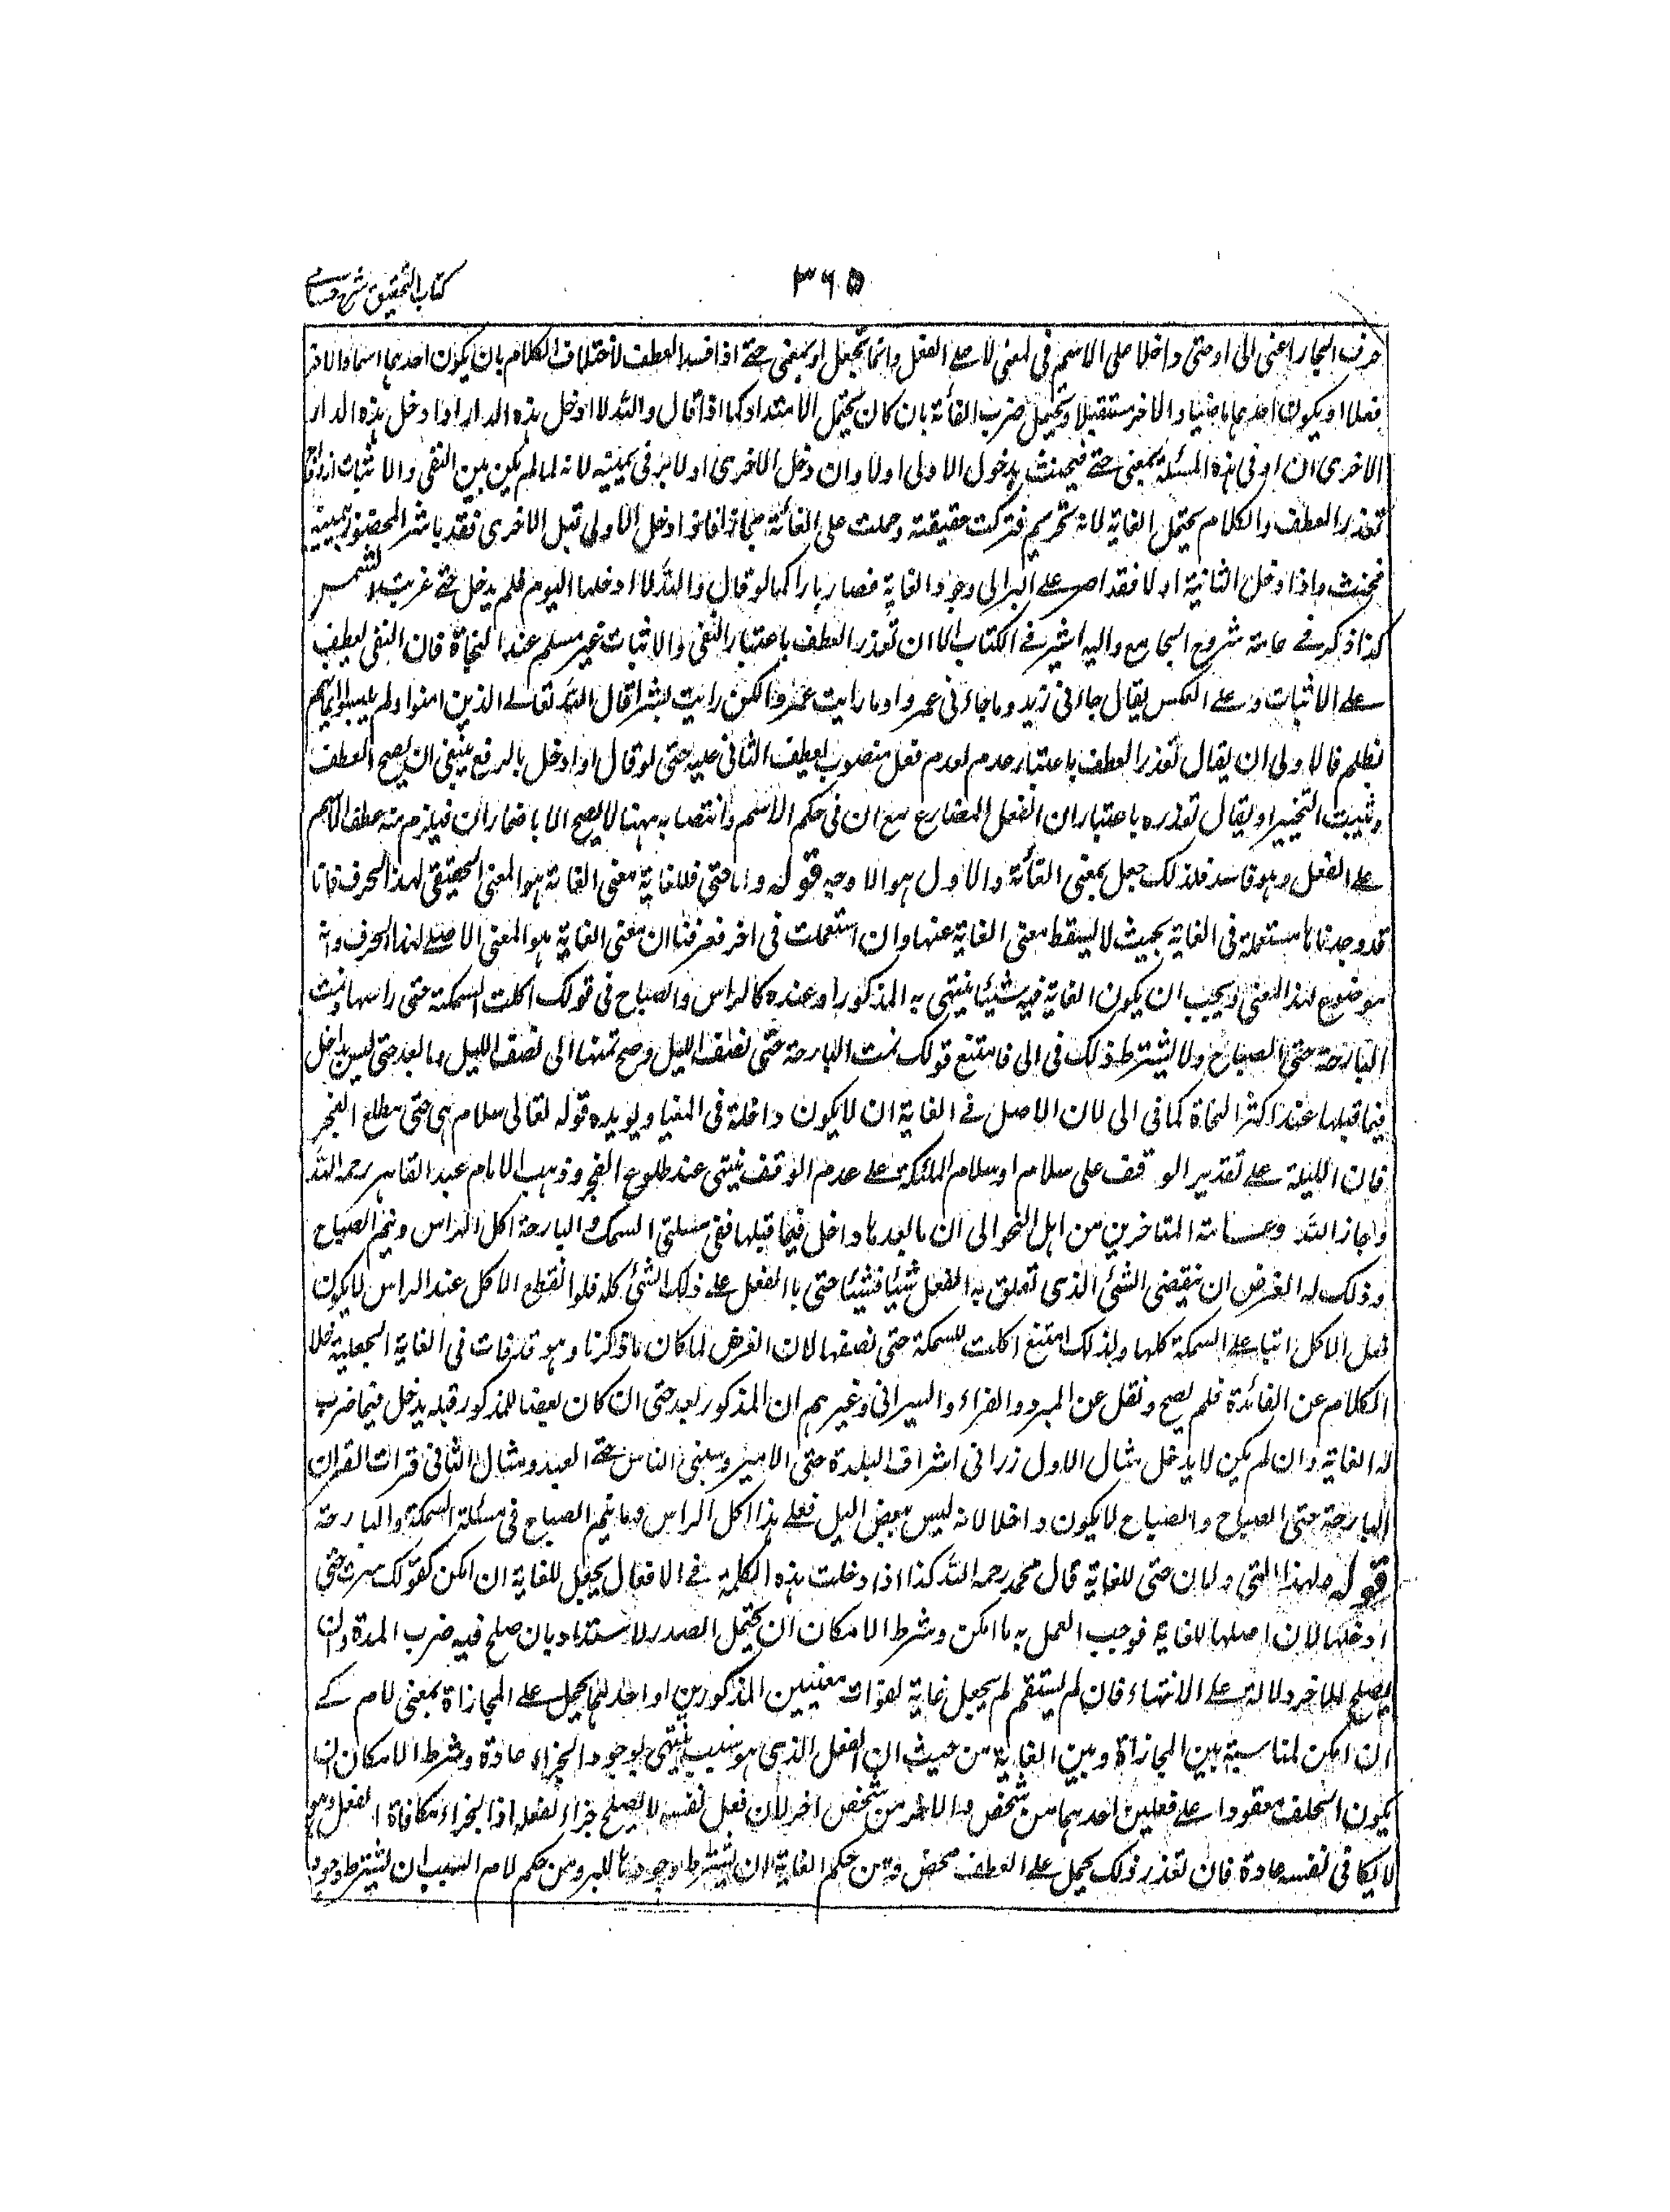 كتاب التحقيق شرح حسامى
٣٦٥
حرف الجار اعنى الى او حتى داخلا على الاسم فى المعنى لا على الفعل وانما تجعل او بمعنى حتے اذا فسد العطف لاختلاف الكلام بان يكون احدهما اسما والاخر
فعلا او يكون احدهما ماضيا والاخر مستقبلا ويحتمل ضرب الغاية بان كان يحتمل الامتداد كما اذا قال والله لا ادخل هذه الدار او ادخل هذه الدار
الاخرى ان او فى هذه المسئلة بمعنى حتے فيحنث بدخول الاولى اولا وان دخل الاخرى اولا بر فى يمينه لانه لما لم يكن بين النفى والاثبات ازدواج
تعذر العطف والكلام يحتمل الغاية لانه تحريم فتركت حقيقته وحملت على الغاية مجازا فاذا دخل الاولى قبل الاخرى فقد باشر المحظور بيمينه
فحنث واذا دخل الثانية اولا فقد اصر على البر الى وجود الغاية فصار بارا كما لو قال والله لا ادخلها اليوم فلم يدخل حتے غربت الشمس
كذا ذكر فے عامة شروح الجامع واليه اشير فے الكتاب الا ان تعذر العطف باعتبار النفى والاثبات غير مسلم عند النحاة فان النفى يعطف
علے الاثبات وعلے العكس يقال جاءنى زيد وما جاءنى عمرو او ما رايت عمروا لكن رايت بشرا قال الله تعالے الذين امنوا ولم يلبسوا ايمانهم
بظلم فالاولى ان يقال تعذر العطف باعتبار عدم لعدم فعل منصوب يعطف الثانى عليه حتى لو قال او ادخل بالرفع ينبغى ان يصح العطف
ويثبت التخيير او يقال تعذره باعتبار ان الفعل المضارع مع ان فى حكم الاسم وانتصابه ههنا لا يصح الا باضمار ان فيلزم منه عطف الاسم
علے الفعل وهو فاسد فلذلك جعل بمعنى الغاية والاول هو الاوجه قوله واما حتى فللغاية معنى الغاية هو المعنى الحقيقى لهذا الحرف فانا
قد وجدناها مستعملة فى الغاية بحيث لا يسقط معنى الغاية عنها وان استعملت فى اخر فعرفنا ان معنى الغاية هو المعنى الاصلے لهذا الحرف وانه
موضوع لهذا المعنى ويجب ان يكون الغاية فيه شيئا ينتهى به المذكور او عنده كالراس والصباح فى قولك اكلت السمكة حتى راسها ونمت
البارحة حتى الصباح ولا يشترط ذلك فى الى فامتنع قولك نمت البارحة حتى نصف الليل وصح نمتها الى نصف الليل وما بعد حتى ليس بداخل
فيما قبلها عند اكثر النحاة كما فى الى لان الاصل فے الغاية ان لا يكون داخلة فى المغيا ويويده قوله تعالى سلام هى حتى مطلع الفجر
فان الليلة علے تقدير الوقف على سلام او سلام الملائكة علے عدم الوقف ينتهى عند طلوع الفجر وذهب الامام عبد القاهر رحمه الله
وجار الله وعامة المتاخرين من اهل النحو الى ان ما بعدها داخل فيما قبلها ففى مسئلتى السمك والبارحة اكل الراس ونيم الصباح
وذلك لـه الغرض ان ينقضى الشئ الذى تعلق به الفعل شيئا فشيئا حتى ياتى الفعل علے ذلك الشئ كله فلو انقطع الاكل عند الراس لا يكون
فعل الاكل اتيا علے السمكة كلها ولذلك امتنع اكلت السمكة حتى نصفها لان الغرض لما كان ما ذكرنا وهو قد فات فى الغاية الجعلية خلا
الكلام عن الفائدة فلم يصح ونقل عن المبرد والفراء والسيرافى وغيرهم ان المذكور بعد حتى ان كان بعضا للمذكور قبله يدخل فيما ضرب
له الغاية وان لم يكن لا يدخل مثال الاول زارنى اشراف البلدة حتى الامير وسبنى الناس حتے العبد ومثال الثانى قرات القران
البارحة حتى الصباح والصباح لا يكون داخلا لانه ليس بعض اليل فعلے هذا اكل الراس وما نيم الصباح فى مسئلة السمكة والبارحة
قوله ولهذا اى ولان حتى للغاية قال محمد رحمه الله كذا اذا دخلت هذه الكلمة فے الافعال يجعل للغاية ان امكن كقولك سرت حتى
ادخلها لان اصلها للغاية فوجب العمل به ما امكن وشرط الامكان ان يحتمل الصدر الامتداد بان صلح فيه ضرب المدة وان
يصلح للاخر دلالة علے الانتهاء فان لم يستقم لم يجعل غاية لفوات معنيين المذكورين او احدهما يحمل علے المجازاة بمعنى لام كے
ان امكن لمناسبة بين المجازاة وبين الغاية من حيث ان الفعل الذى هو سبب ينتهى بوجود الجزاء عادة وشرط الامكان ان
يكون الحلف معقودا علے فعلين احدهما من شخص والاخر من شخص اخر لان فعل نفسه لا يصلح جزاء لفعله اذ الجزاء مكافاة الفعل وهو
لا يكافى نفسه عادة فان تعذر ذلك يحمل علے العطف المحض ومن حكم الغاية ان يشترط وجودها للبر ومن حكم لام السبب ان يشترط وجود